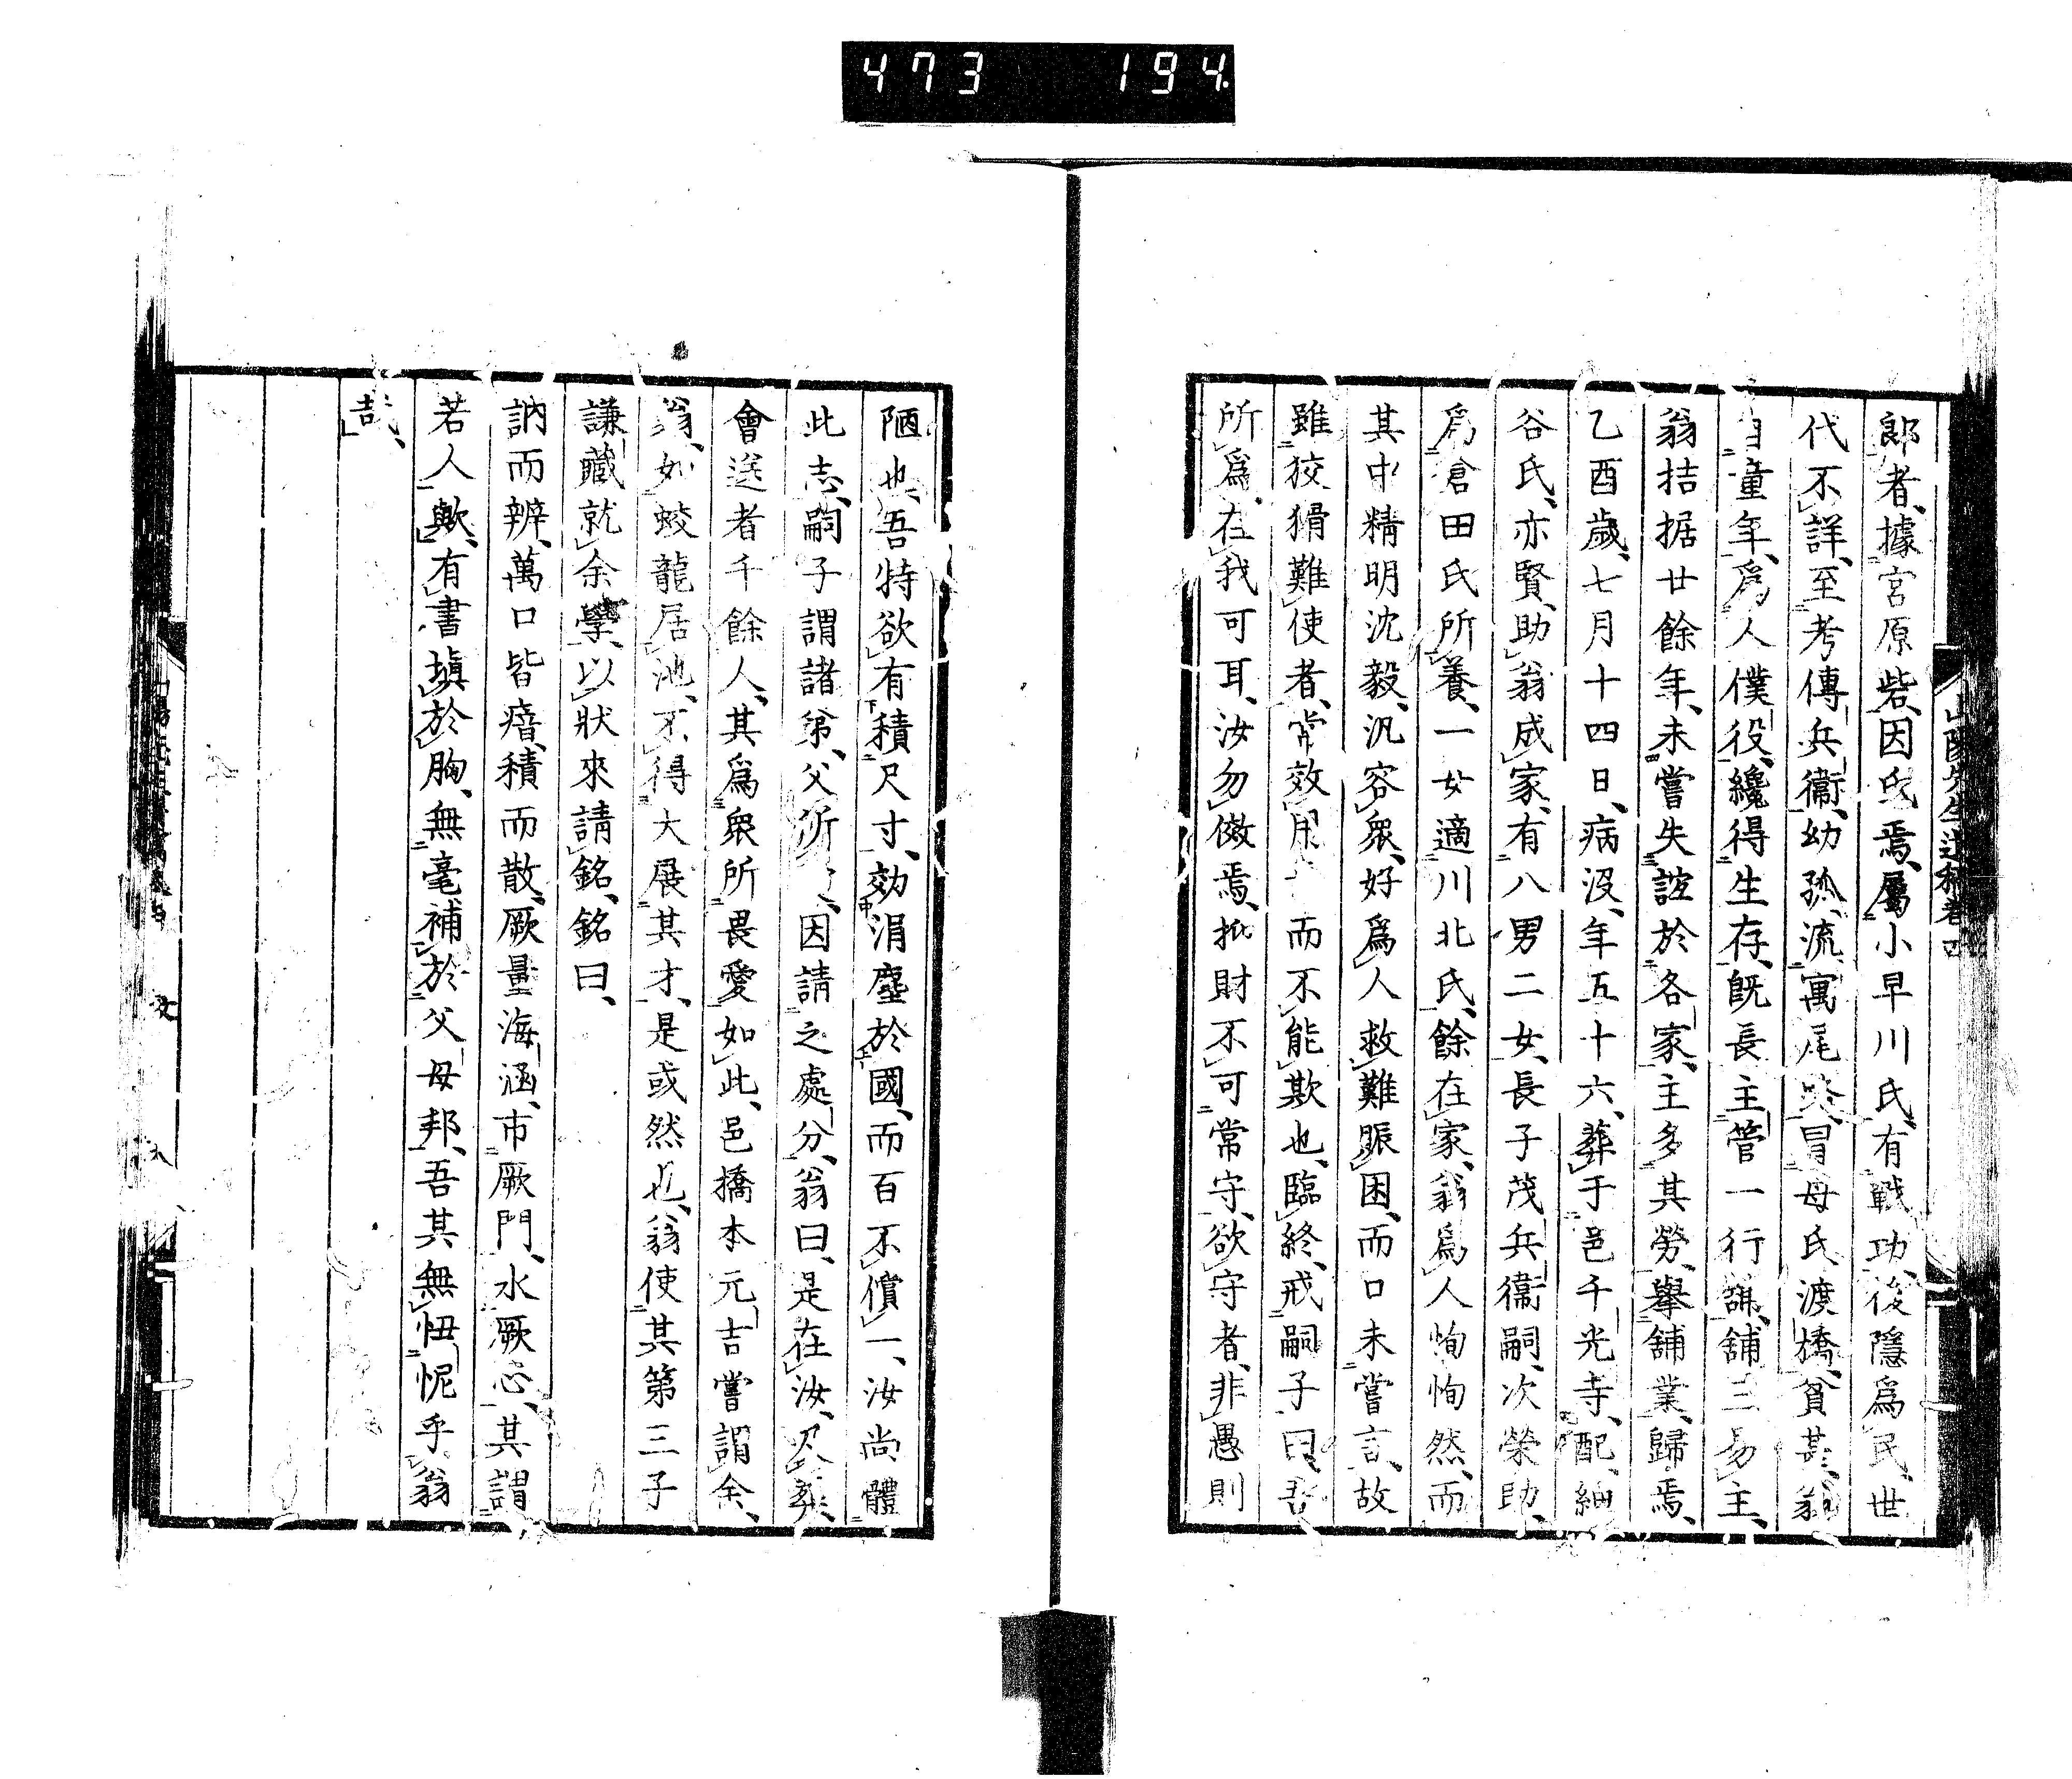 473 194
郎者、據宮原砦、因氏焉、屬小早川氏、有戰功、後隱爲民、世
代不詳、至考傳兵衞、幼孤、流寓尾道、冒母氏渡橋、貧甚、翁
自童年、爲人僕役、纔得生存、既長主管一行舖、舖三易主、
翁拮据廿餘年、未嘗失諾於各家、主多其勞、擧舖業、歸焉、
乙酉歲、七月十四日、病沒、年五十六、葬于邑千光寺、配細
谷氏、亦賢、助翁成家、有八男二女、長子茂兵衞嗣、次榮助、
爲倉田氏所養、一女適川北氏、餘在家、翁爲人恂恂然、而
其中精明沈毅、汎容衆、好爲人救難賑困、而口未嘗言、故
雖狡猾難使者、常效用 而不能欺也、臨終、戒嗣子曰、吾
所爲、在我可耳、汝勿傚焉、扺財不可常守、欲守者、非愚則
陋也、吾特欲有積尺寸、効涓塵於國、而百不償一、汝尚體
此志、嗣子謂諸弟、父所 、因請之處分、翁曰、是在汝、及葬、
會送者千餘人、其爲衆所畏愛如此、邑橋本元吉嘗謂余、
翁、如蛟龍居池、不得大展其才、是或然也、翁使其第三子
謙藏就余學、以狀來請銘、銘曰、
訥而辨、萬口皆瘖、積而散、厥量海涵、市厥門、水厥心、其謂
若人歟、有書塡於胸、無毫補於父母邦、吾其無忸怩乎、翁
哉、
山陽先生遺稿卷四
文
九